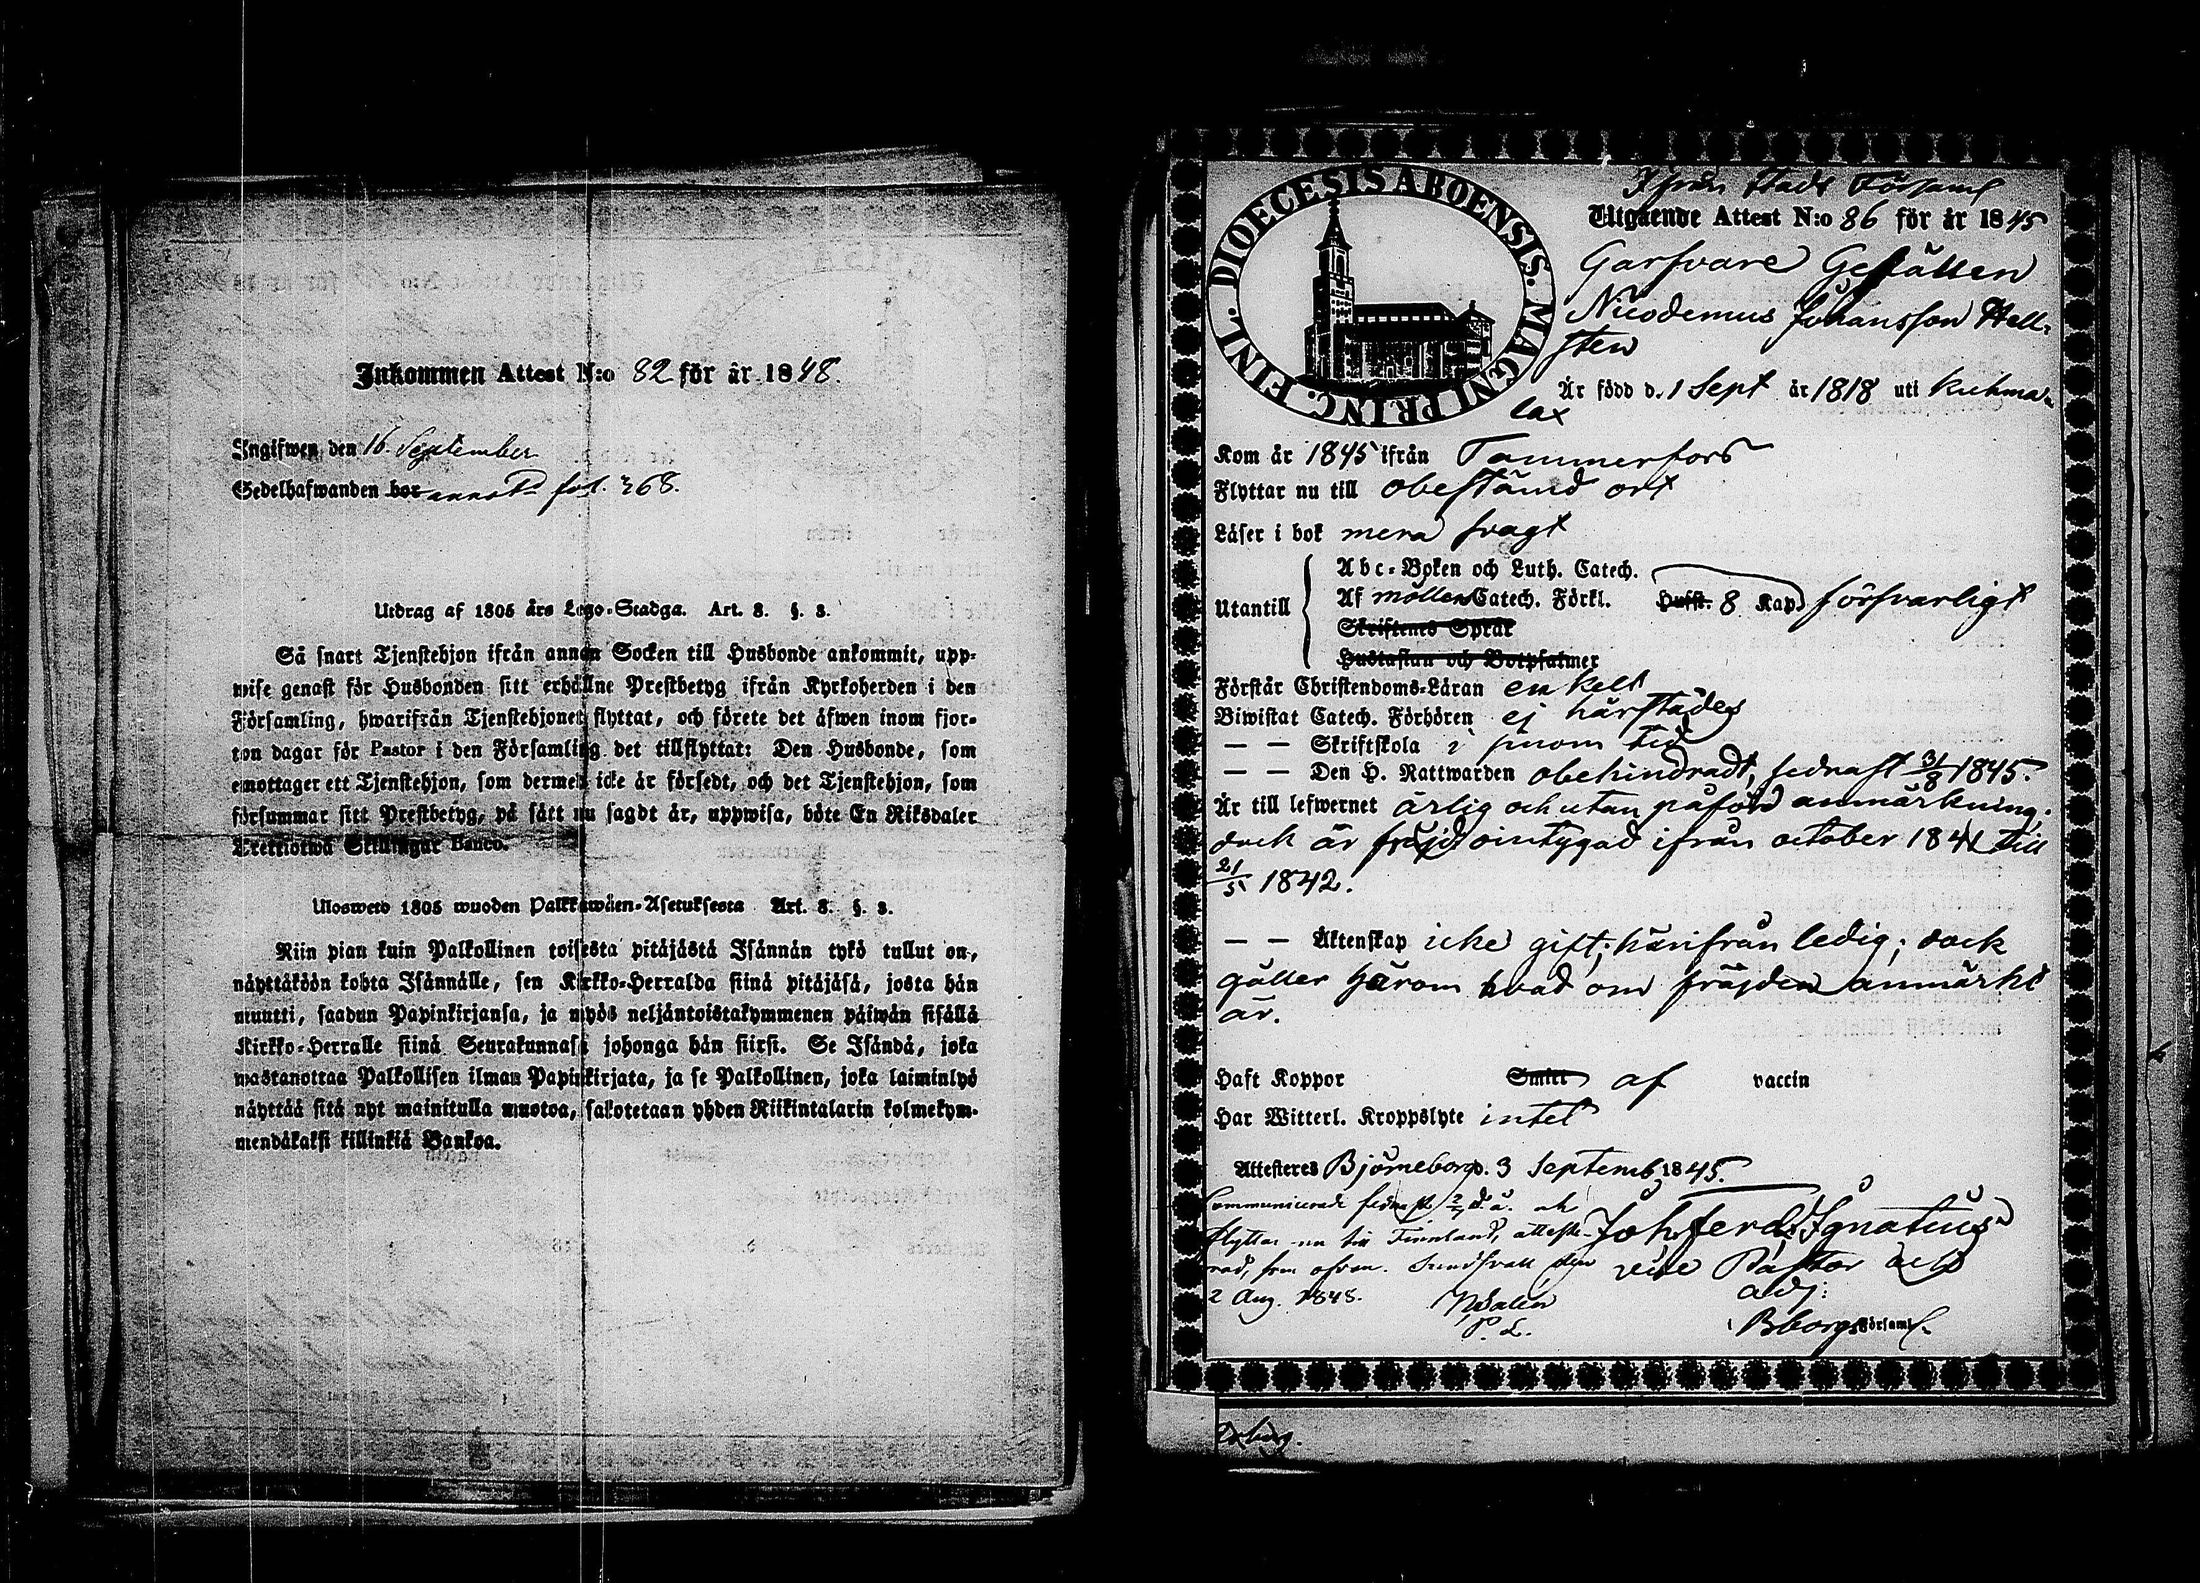 Inkommen Attest N:o 82 för år 1848.
Ingifwen den 16. September
Sedelhafwanden bor annot. fol. 268.
Utdrag af 1805 års Lego-Stadga. Art. 8. §. 8.
Så snart Tjenstehjon ifrån annan Socken till Husbonde ankommit, upp-
wise genast för Husbonden sitt erhållne Prestbetyg ifrån Kyrkoherden i den
Församling, hwarifrån Tjenstehjonet flyttat, och förete det äfwen inom fjor-
ton dagar för Pastor i den Församling det tillflyttat: Den Husbonde, som
emottager ett Tjenstehjon, som dermed icke är försedt, och det Tjenstehjon, som
försummar sitt Prestbetyg, på sätt nu sagdt är, uppwisa, böte En Riksdaler
Trettiotwå Skillingar Banco.
Uloswetο 1805 wuoden Palkkawäen-Asetuksesta Art. 8. §. 8.
Niin pian kuin Palkollinen toisesta pitäjästä Isännän tykö tullut on,
näyttäköön kohta Isännälle, sen Kirkko-Herralda siinä pitäjäsä, josta hän
muutti, saadun Papinkirjansa, ja myös neljäntoistakymmenen päiwän sisällä
Kirkko-Herralle siinä Seurakunnasa johonga hän siirsi. Se Isändä, joka
wastanottaa Palkollisen ilman Papinkirjata, ja se Palkollinen, joka laiminlyö
näyttää sitä nyt mainitulla muotoa, sakotetaan yhden Riikintalarin kolmekym-
mendäkaksi killinkiä Bankoa.
DIOECESIS ABOENSIS. MAGNI PRINC. FINL.
Ifrån Stads Församl
Utgående Attest N:o 86 för år 1845
Garfvare Gesällen
Nicodemus Johansson Hell-
sten
Är född d. 1 Sept år 1818 uti Kuhma-
lax
Kom år 1845 ifrån Tammerfors
Flyttar nu till obestämd ort
Läser i bok mera svagt
Abc-Boken och Luth. Catech.
Utantill Af möllers Catech. Förkl. Husst. 8 Kap. försvarligt
Skriftenes Språk
Hustaflan och Botpsalmer
Förstår Christendoms-Läran enkelt
Biwistat Catech. Förhören ej härstädes
— — Skriftskola i sinom tid
— — Den H. Nattwarden obehindradt, sednast 31/8 1845.
Är till lefwernet ärlig och utan påförd anmärkning;
dock är fräjd ointygad ifrån october 1841 till
21/5 1842.
— — Äktenskap icke gift; härifrån ledig; dock
gäller härom hvad om fräjden anmärkt
är.
Haft Koppor Smitt af vaccin
Har Witterl. Kroppslyte intet
Attesteras Björneborg d. 3 Septemb. 1845.
Communicerade sednast 2/7 d. å. och
flyttar nu till Finnland, atteste-
rad, som ofvan. Sundsvall den
2 Aug. 1848.
P. L.
Joh. Ferd. Ignatius
vice Pastor och
adj:
Bborgs Församl.